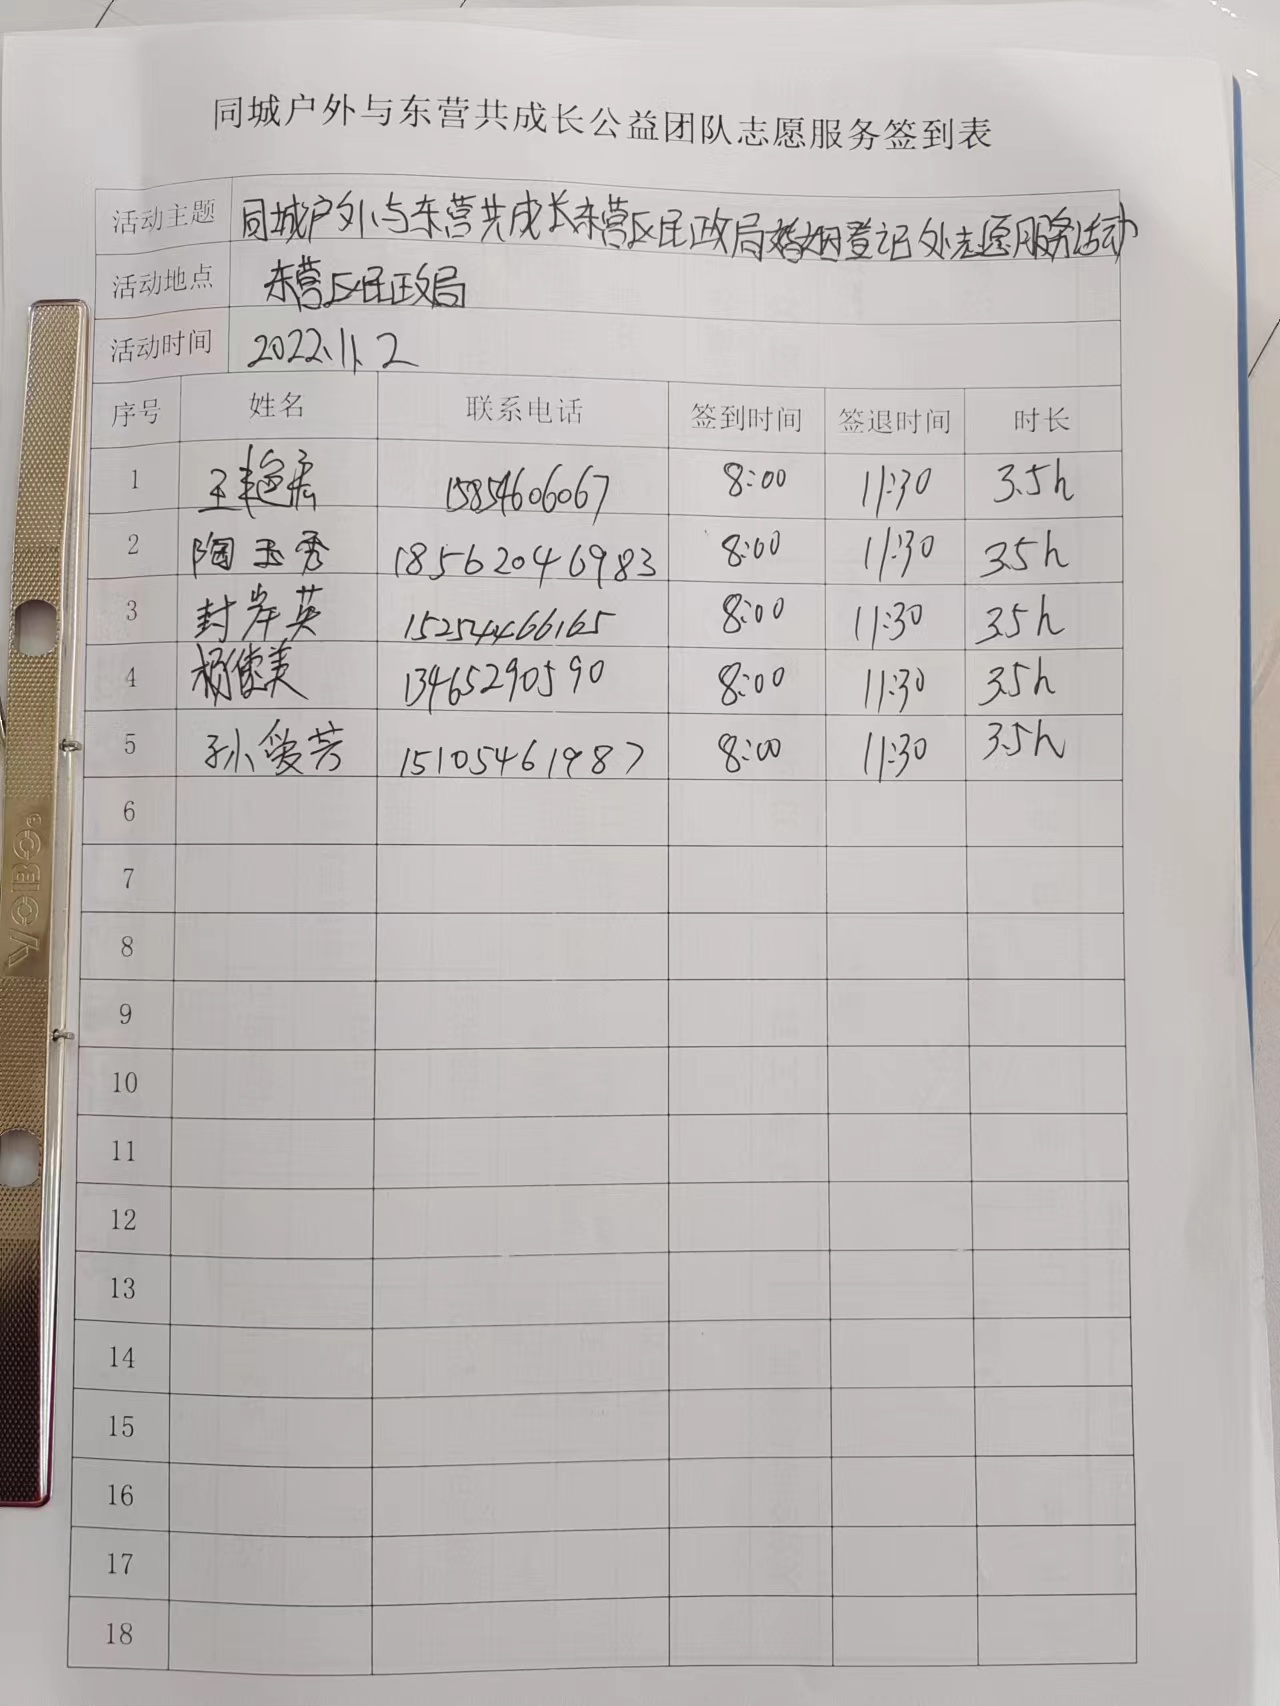 同城户外与东营共成长公益团队志愿服务签到表
活动主题 同城户外与东营共成长东营区民政局婚姻登记处志愿服务活动
活动地点 东营区民政局
活动时间 2022.11.2
序号 姓名 联系电话 签到时间 签退时间 时长
1 王艳宏 15854606067 8:00 11:30 3.5h
2 陶玉秀 18562046983 8:00 11:30 3.5h
3 封岸英 15254466165 8:00 11:30 3.5h
4 杨俊美 13465290590 8:00 11:30 3.5h
5 孙爱芳 15105461987 8:00 11:30 3.5h
6
7
8
9
10
11
12
13
14
15
16
17
18